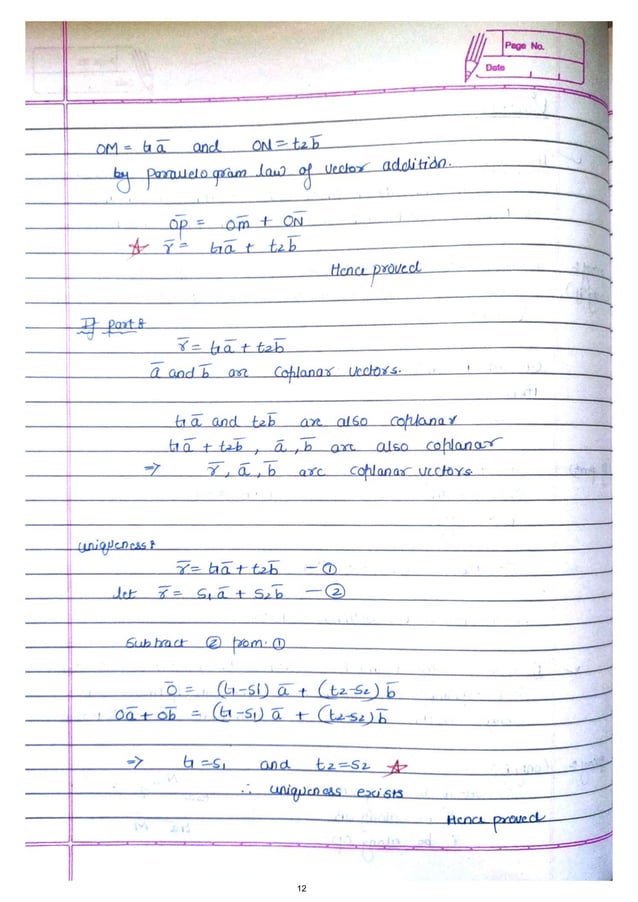 Page No.
Date
OM = t1 a̅ and ON = t2 b̅
by Parallelogram law of vector addition.
O̅P̅ = O̅M̅ + O̅N̅
☆ r̅ = t1 a̅ + t2 b̅
Hence proved
II part :
r̅ = t1 a̅ + t2 b̅
a̅ and b̅ are Coplanar vectors.
t1 a̅ and t2 b̅ are also coplanar
t1 a̅ + t2 b̅ , a̅ , b̅ are also coplanar
=> r̅ , a̅ , b̅ are coplanar vectors
uniqueness :
r̅ = t1 a̅ + t2 b̅ — ①
let r̅ = S1 a̅ + S2 b̅ — ②
Subtract ② from ①
0̅ = (t1-S1) a̅ + (t2-S2) b̅
0a̅ + 0b̅ = (t1-S1) a̅ + (t2-S2) b̅
=> t1 = S1 and t2 = S2 ☆
∴ uniqueness exists
Hence proved
12